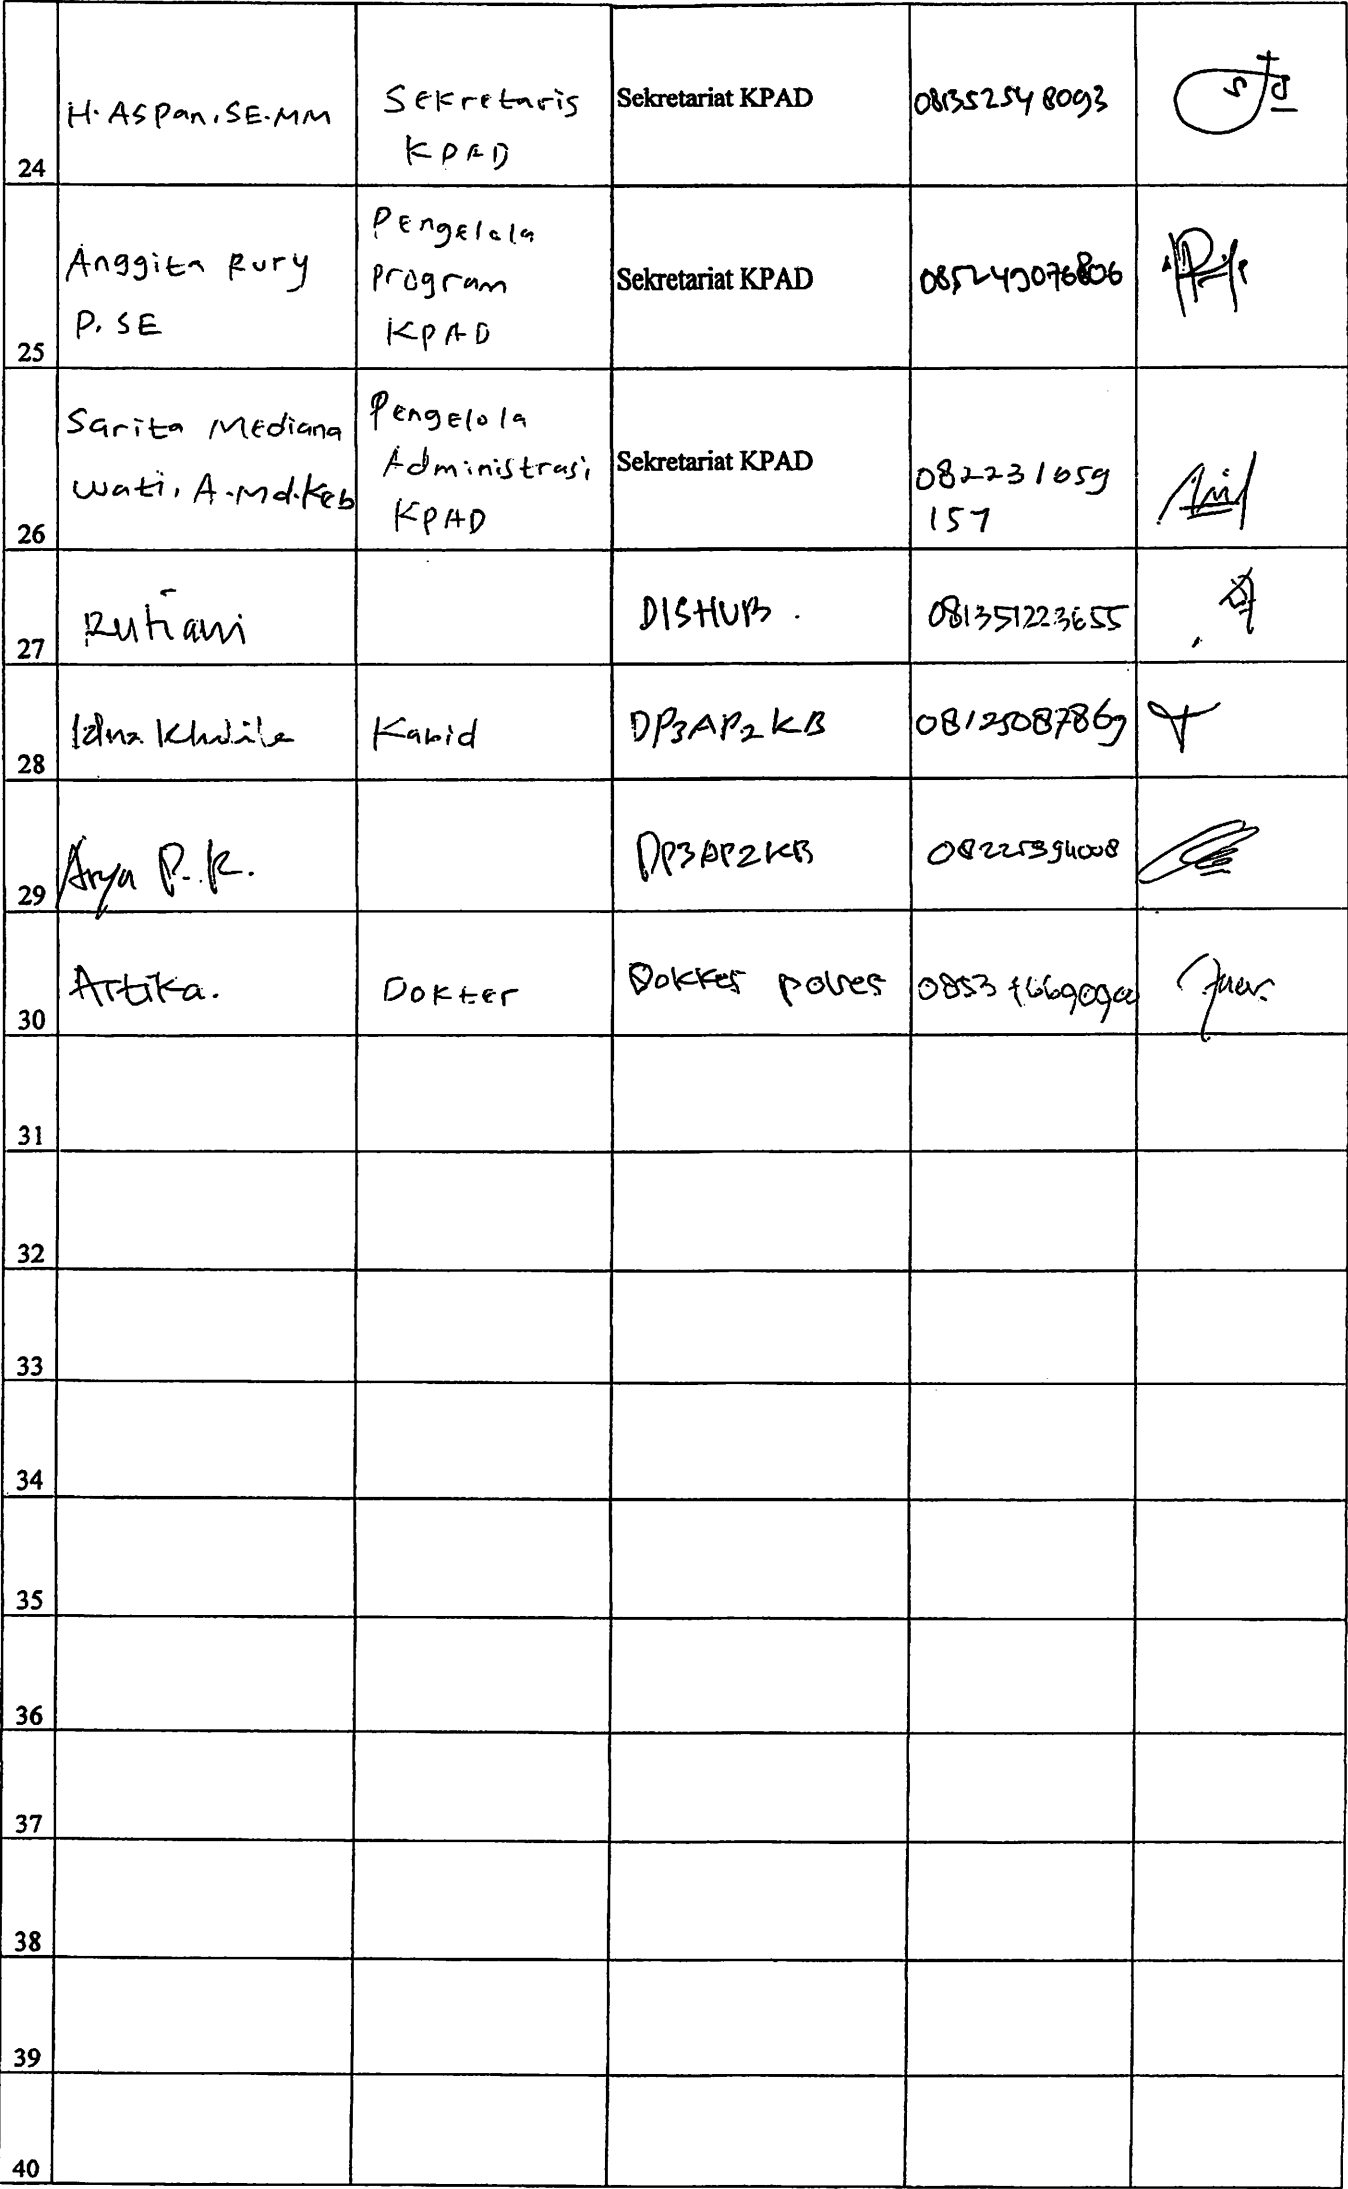 24 H. Aspan, SE.MM Sekretaris KPAD Sekretariat KPAD 081352548093
25 Anggita Rury P. SE Pengelola Program KPAD Sekretariat KPAD 085249076806
26 Sarita Mediana wati, A.Md.Keb Pengelola Administrasi KPAD Sekretariat KPAD 082231659 157
27 Rutiani DISHUB. 081351223655
28 Kabid DP3AP2KB 08125087869
29 Arya P.R. DP3AP2KB
30 Artika. Dokter Dokkes polres
31
32
33
34
35
36
37
38
39
40